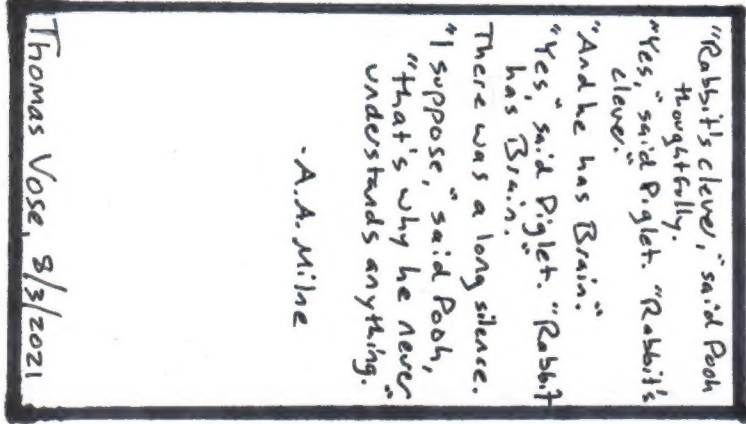 "Rabbit's clever," said Pooh
thoughtfully.
"Yes," said Piglet. "Rabbit's
clever."
"And he has Brain."
"Yes," said Piglet. "Rabbit
has Brain."
There was a long silence.
"I suppose," said Pooh,
"that's why he never
understands anything."
-A.A. Milne
Thomas Vose, 8/3/2021